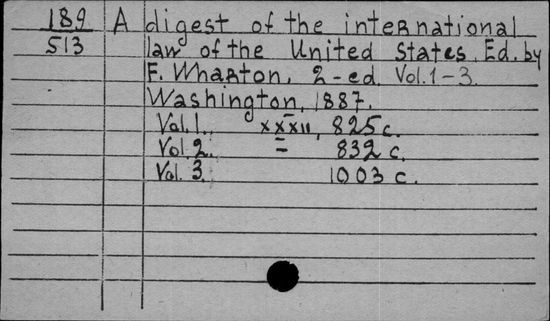 189 A digest of the international
513 law of the United States. Ed. by
F. Wharton. 2-ed. Vol. 1-3.
Washington, 1887.
Vol. 1. XXXII, 825 c.
Vol. 2. = 832 c.
Vol. 3. 1003 c.